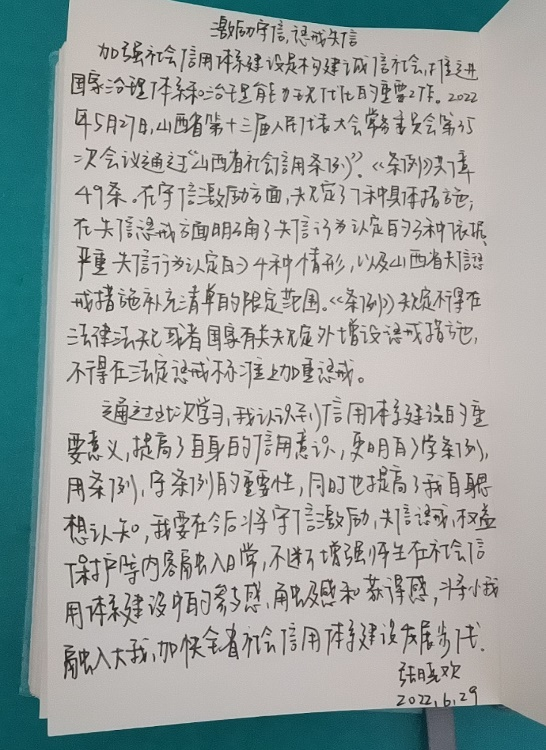 激励守信,惩戒失信
加强社会信用体系建设是构建诚信社会,推进
国家治理体系和治理能力现代化的重要工作。2022
年5月27日,山西省第十三届人民代表大会常务委员会第35
次会议通过“山西省社会信用条例”。《条例》共7章
49条。在守信激励方面,规定了7种具体措施;
在失信惩戒方面明确了失信行为认定的3种依据、
严重失信行为认定的4种情形,以及山西省失信惩
戒措施补充清单的限定范围。《条例》规定不得在
法律法规或者国家有关规定外增设惩戒措施,
不得在法定惩戒标准上加重惩戒。
通过此次学习,我认识到信用体系建设的重
要意义,提高了自身的信用意识,更明白了学条例,
用条例,守条例的重要性,同时也提高了我自身思
想认知,我要在今后将守信激励,失信惩戒,权益
保护等内容融入日常,不断增强师生在社会信
用体系建设中的参与感、触及感和获得感,将小我
融入大我,加快全省社会信用体系建设发展步伐.
张晓欢
2022.6.29